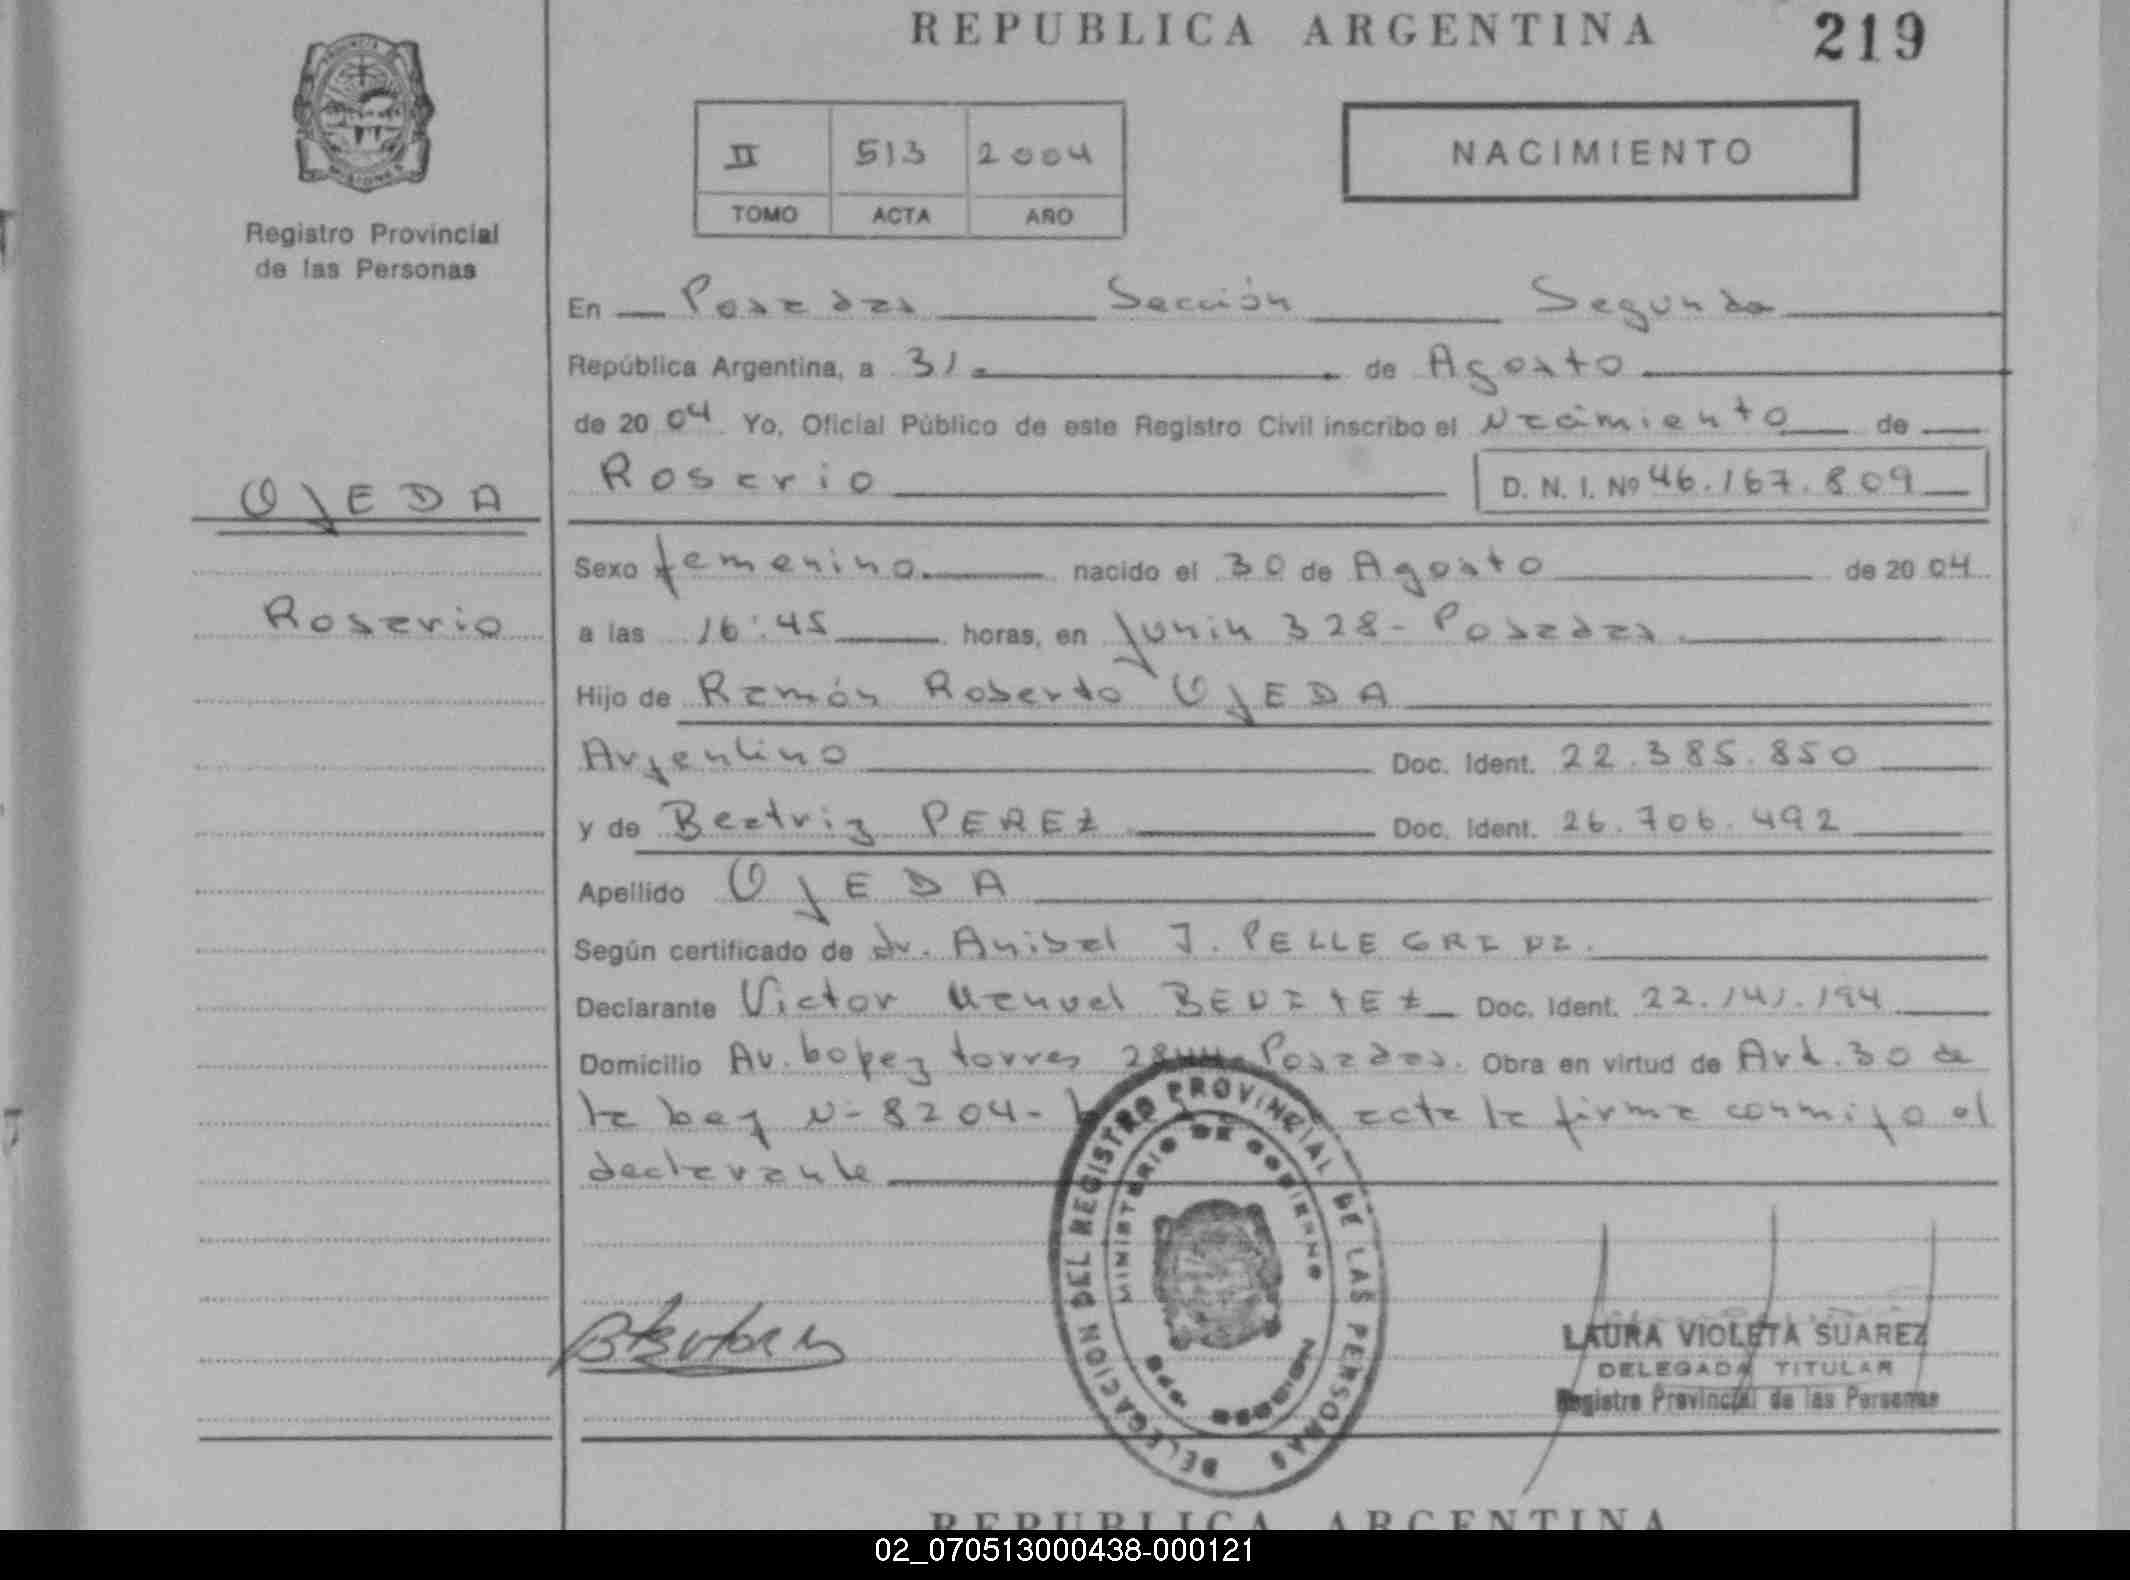 REPUBLICA ARGENTINA 219
II 513 2004
TOMO ACTA AÑO
NACIMIENTO
Registro Provincial
de las Personas
En Posadas Sección Segunda
República Argentina, a 31 de Agosto
de 20 04 Yo, Oficial Público de este Registro Civil inscribo el Nacimiento de
Rosario D. N. I. Nº 46.167.809
OJEDA
Rosario
Sexo femenino nacido el 30 de Agosto de 20 04
a las 16:45 horas, en Junin 328 - Posadas.
Hijo de Ramón Roberto OJEDA
Argentino Doc. Ident. 22.385.850
y de Beatriz PEREZ Doc. Ident. 26.706.492
Apellido OJEDA
Según certificado de dr. Anibal J. PELLEGRINI.
Declarante Victor Manuel BENITEZ Doc. Ident. 22.141.194
Domicilio Av. Lopez torres 2844 - Posadas. Obra en virtud de Art. 30 de
la Ley N- 8204- acta la firma conmigo el
declarante
DELEGACION DEL REGISTRO PROVINCIAL DE LAS PERSONAS
MINISTERIO DE GOBIERNO
MISIONES
LAURA VIOLETA SUAREZ
DELEGADA TITULAR
Registro Provincial de las Personas
REPUBLICA ARGENTINA
02_070513000438-000121